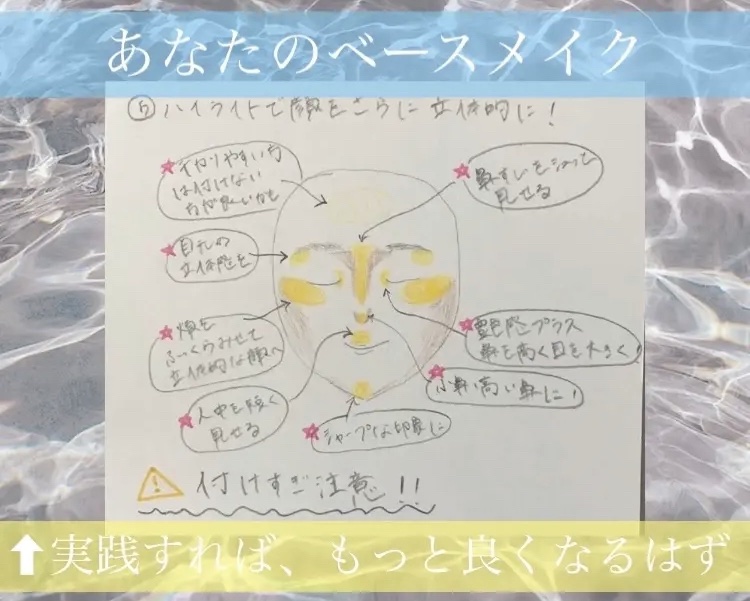 あなたのベースメイク
⑤ハイライトで顔をさらに立体的に!
テカりやすい方
は付けない
方が良いかも
鼻すじをシュッと
見せる
目元の
立体感を
頬を
ふっくらみせて
立体的な顔へ
艶感プラス
鼻を高く目を大きく!
小鼻高い鼻に!
人中を短く
見せる
シャープな印象に
付けすぎ注意!!
⬆実践すれば、もっと良くなるはず